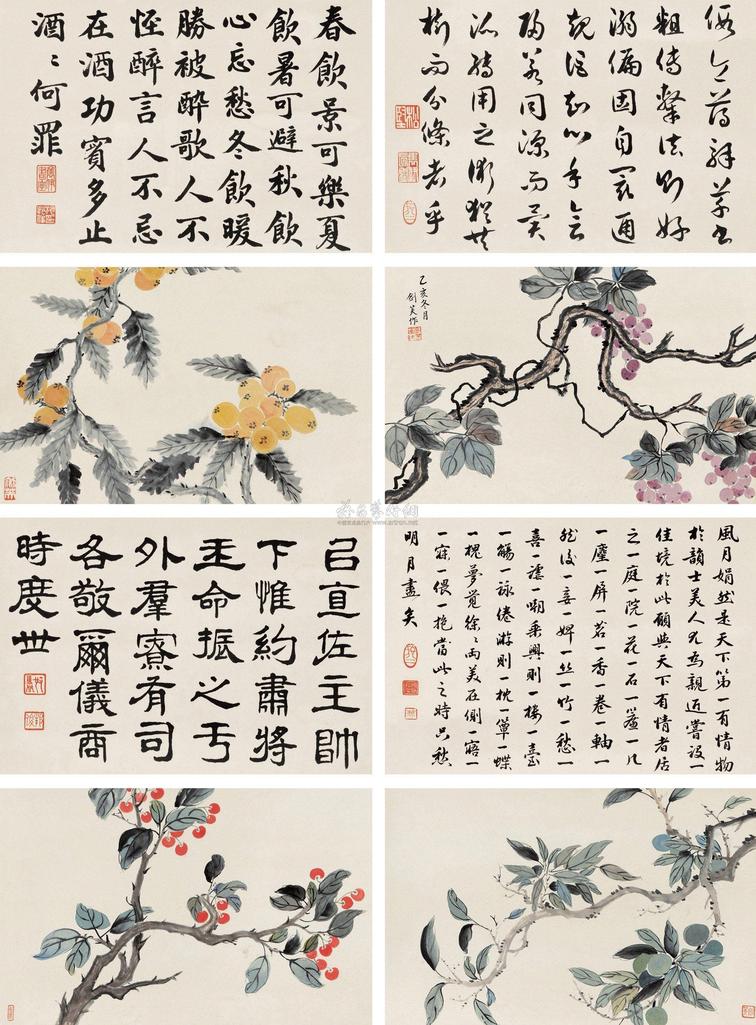 假令薄解草書
粗傳隸法則好
溺偏固自閡通
規詎知心手會
歸若同源而異
派轉用之術猶共
樹而分條者乎
春飲景可樂夏
飲暑可避秋飲
心忘愁冬飲暖
勝被醉歌人不
怪醉言人不忌
在酒功賓多止
酒〻何罪
乙亥冬月
作
風月娟然是天下第一有情物
於韻士美人尤為親近嘗設一
佳境於此願與天下有情者居
之一庭一院一花一石一簾一几
一麈一屏一茗一香一卷一軸一
然後一妾一婢一絲一竹一愁一
喜一謔一嘲乘興則一樓一臺
一觴一詠倦游則一枕一簟一蝶
一槐夢覺徐〻兩美在側一寤一
一寐一偎一抱當此之時只愁
明月盡矣
呂亶佐主帥
下惟約肅將
王命振之于
外羣寮有司
各敬爾儀商
時度世